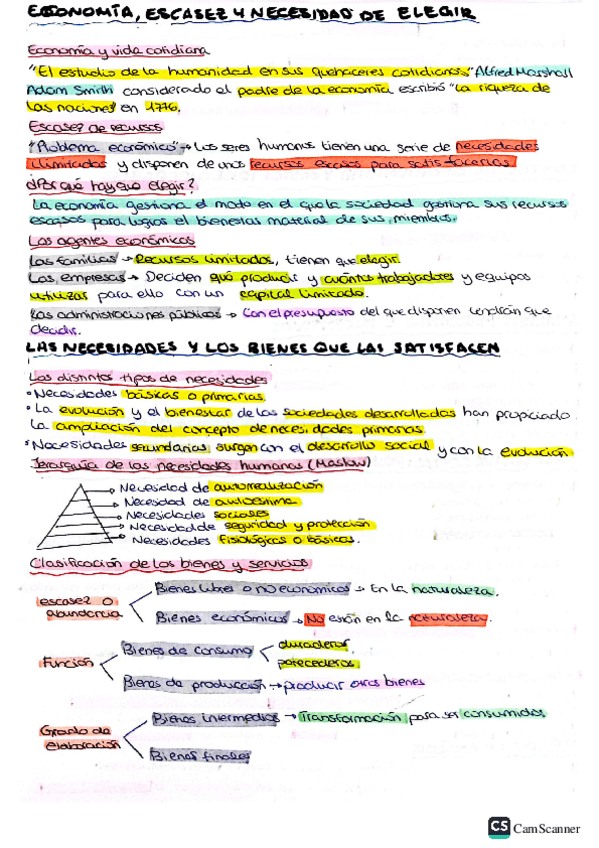 ECONOMÍA, ESCASEZ Y NECESIDAD DE ELEGIR
Economía y vida cotidiana
"El estudio de la humanidad en sus quehaceres cotidianos." Alfred Marshall
Adam Smith considerado el padre de la economía escribió "La riqueza de
las naciones en 1776.
Escasez de recursos
"Problema económico" → Los seres humanos tienen una serie de necesidades
ilimitadas y disponen de unos recursos escasos para satisfacerlas.
¿Por qué hay que elegir?
La economía gestiona el modo en el que la sociedad gestiona sus recursos
escasos para lograr el bienestar material de sus miembros.
Los agentes económicos
Las familias → Recursos limitados, tienen que elegir.
Las empresas → Deciden qué producir y cuántos trabajadores y equipos
utilizar para ello con un capital limitado.
Las administraciones públicas → Con el presupuesto del que disponen tendrán que
decidir.
LAS NECESIDADES Y LOS BIENES QUE LAS SATISFACEN
Los distintos tipos de necesidades
• Necesidades básicas o primarias.
• La evolución y el bienestar de las sociedades desarrolladas han propiciado
la ampliación del concepto de necesidades primarias.
• Necesidades secundarias surgen con el desarrollo social y con la evolución
Jerarquía de las necesidades humanas (Maslow)
→ Necesidad de autorrealización
→ Necesidad de autoestima
→ Necesidades sociales
→ Necesidad de seguridad y protección
→ Necesidades fisiológicas o básicas.
Clasificación de los bienes y servicios
escasez o abundancia
Bienes libres o no económicos → En la naturaleza.
Bienes económicos → No están en la naturaleza.
Función
Bienes de consumo
duraderos.
perecederos.
Bienes de producción → producir otros bienes
Grado de elaboración
Bienes intermedios → Transformación para ser consumidos
Bienes finales
CS CamScanner